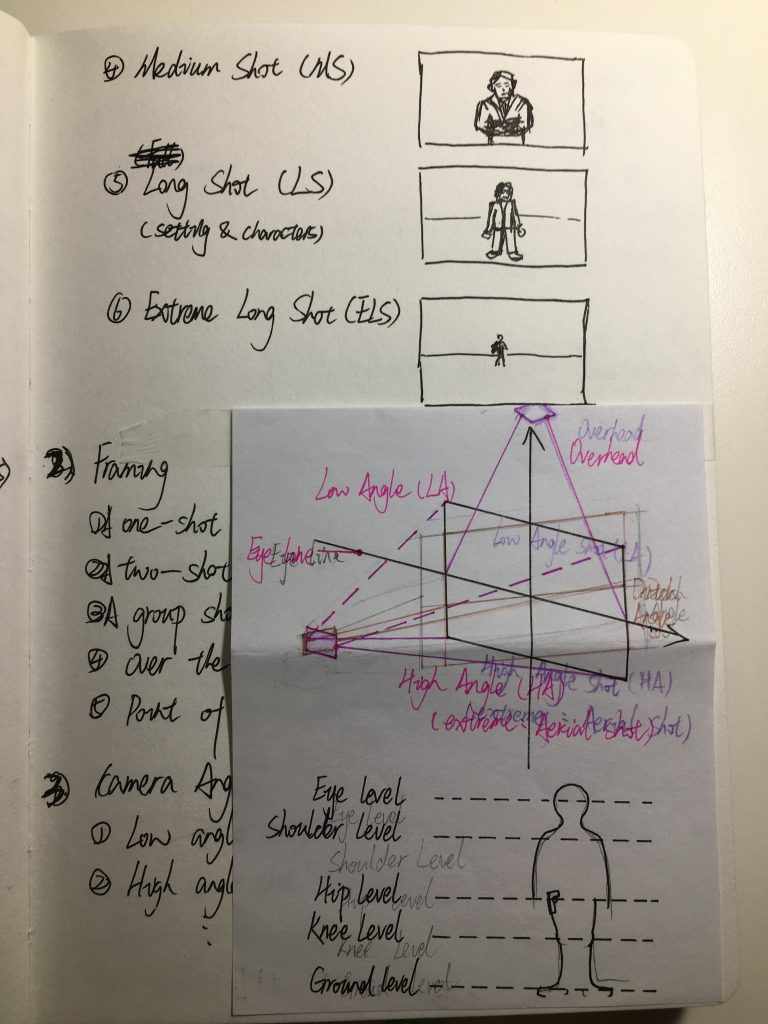 ④ Medium Shot (MS)
⑤ Long Shot (LS)
(setting & characters)
⑥ Extreme Long Shot (ELS)
2) Framing
① A one-shot
② A two-shot
③ A group sho
④ over the
⑤ Point of
3) Camera Ang
① Low angl
② High angl
⋮
Overhead
Overhead
Low Angle (LA)
Eye Line
Eye Line
Low Angle Shot (LA)
Dutch
Angle
High Angle Shot (HA)
High Angle (HA)
(extreme: Aerial shot)
(extreme: Aerial shot)
Eye level
Eye Level
Shoulder level
Shoulder Level
Hip Level
Hip Level
Knee Level
Knee Level
Ground level
Ground Level